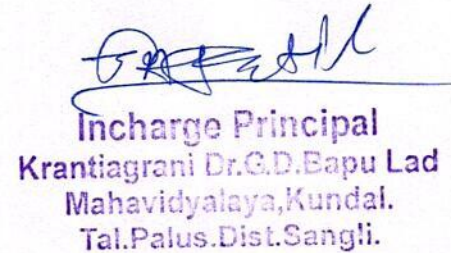 Incharge Principal
Krantiagrani Dr.G.D.Bapu Lad
Mahavidyalaya,Kundal.
Tal.Palus.Dist.Sangli.